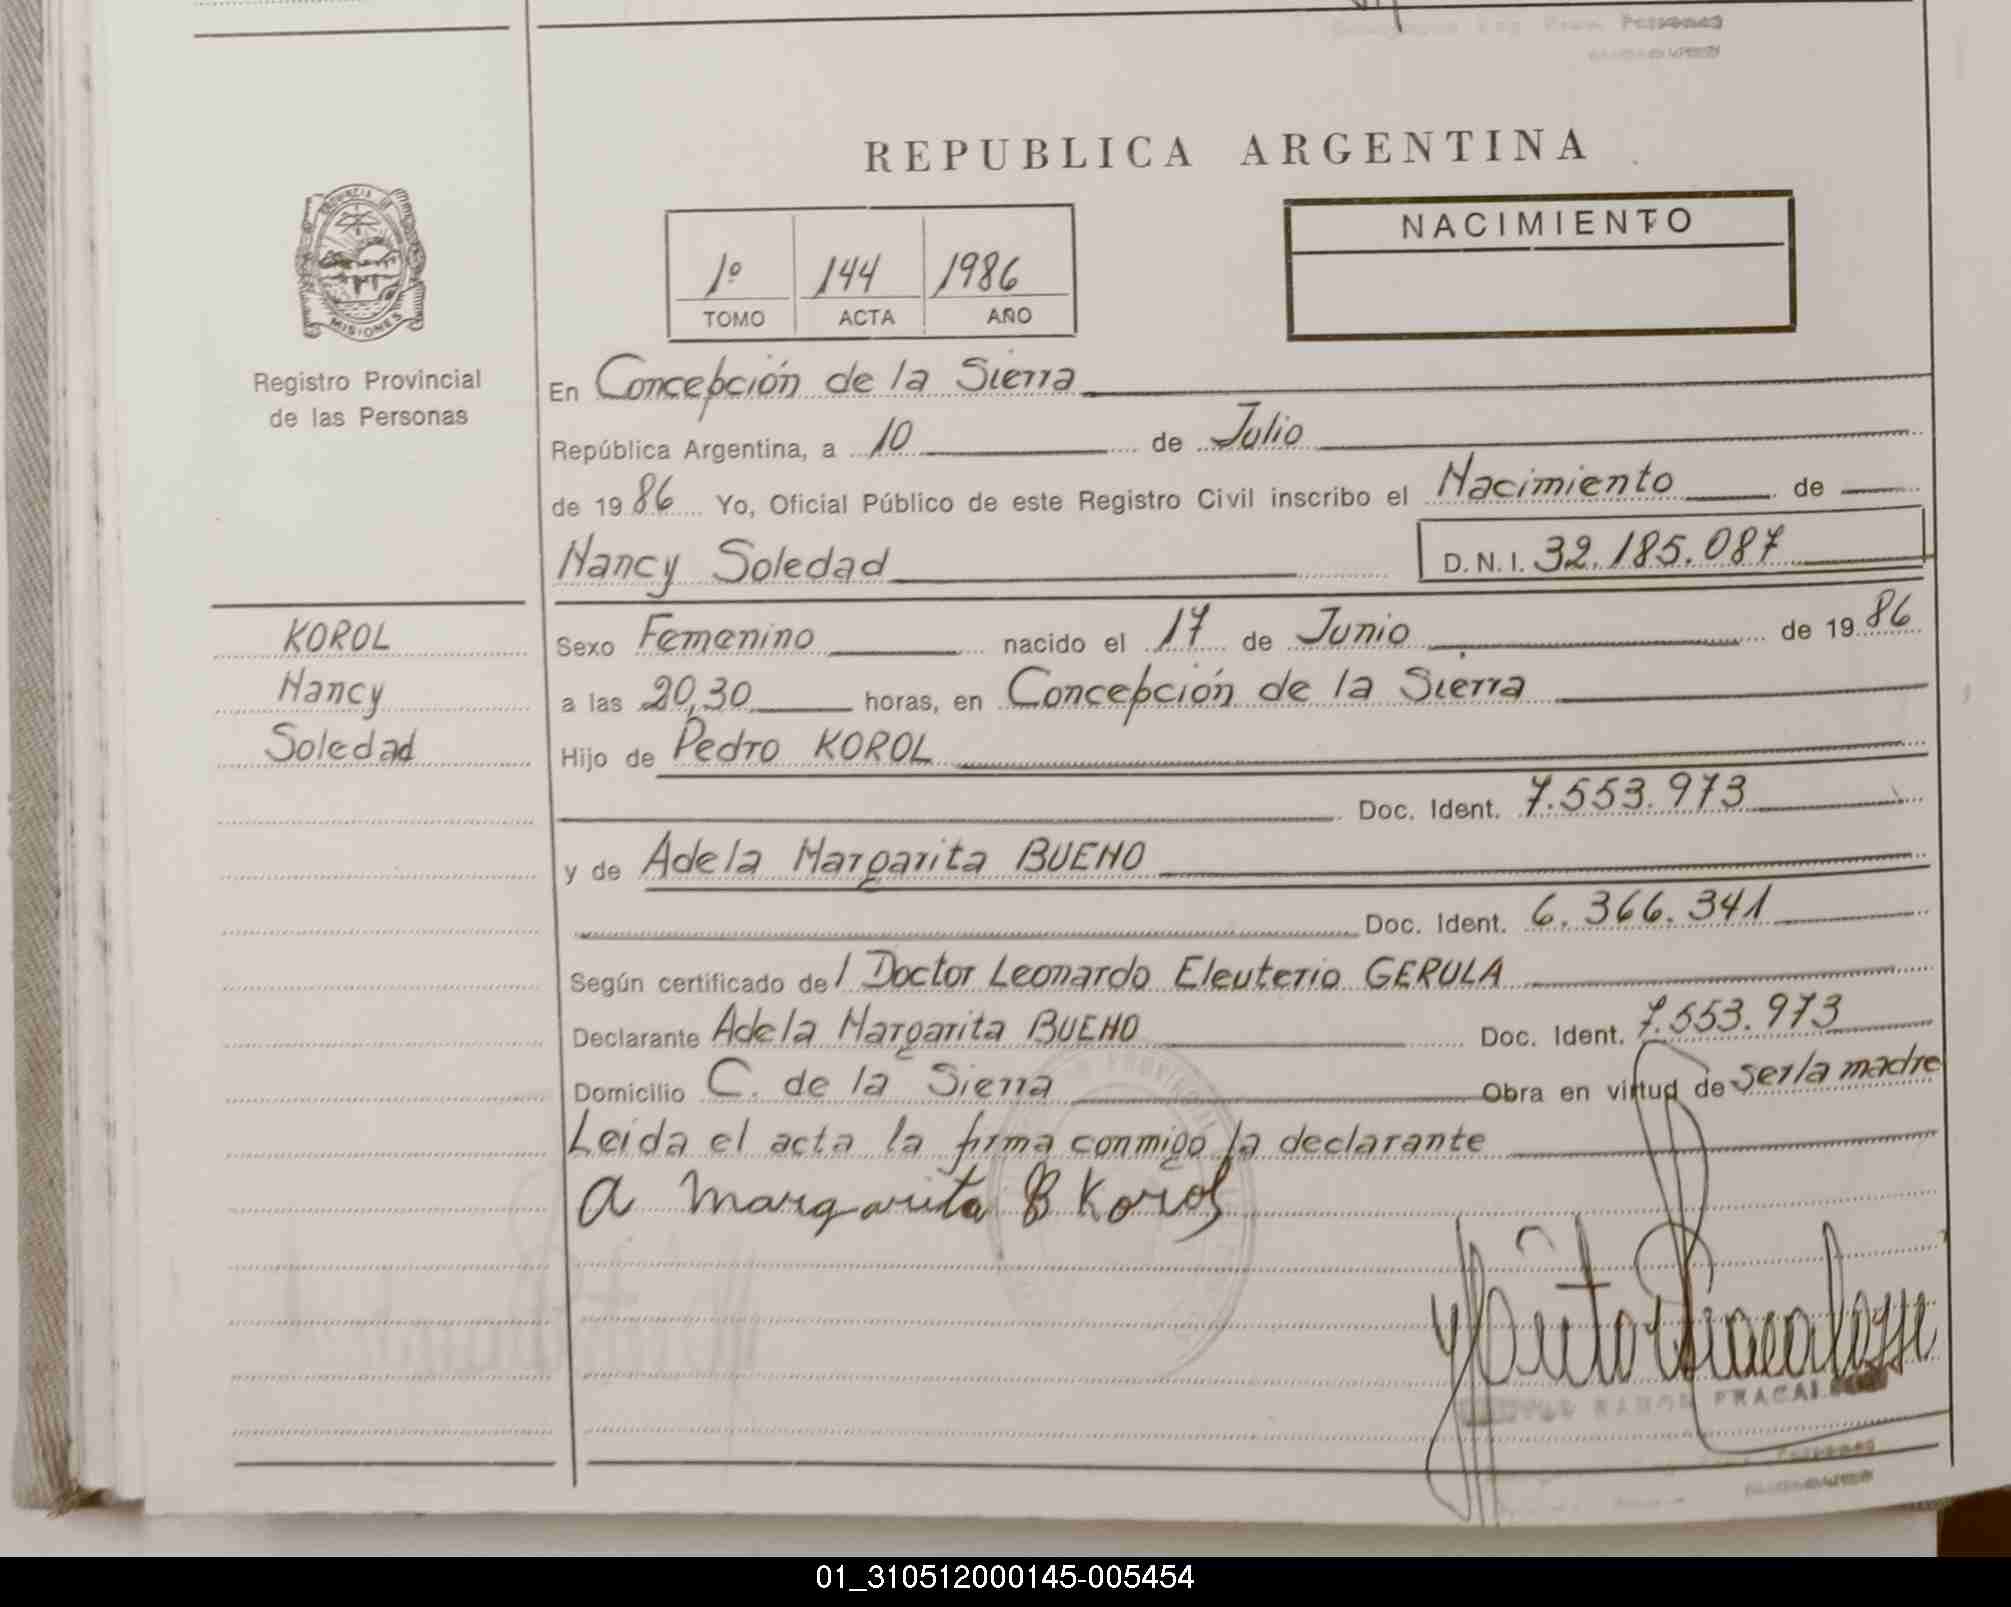 REPUBLICA ARGENTINA
PROVINCIA DE
MISIONES
Registro Provincial
de las Personas
1º 144 1986
TOMO ACTA AÑO
NACIMIENTO
En Concepción de la Sierra
República Argentina, a 10 de Julio
de 1986 Yo, Oficial Público de este Registro Civil inscribo el Nacimiento de
Nancy Soledad D.N.I. 32.185.087
KOROL
Nancy
Soledad
Sexo Femenino nacido el 17 de Junio de 1986
a las 20,30 horas, en Concepción de la Sierra
Hijo de Pedro KOROL
Doc. Ident. 7.553.973
y de Adela Margarita BUENO
Doc. Ident. 6.366.341
Según certificado del Doctor Leonardo Eleuterio GERULA
Declarante Adela Margarita BUENO Doc. Ident. 7.553.973
Domicilio C. de la Sierra Obra en virtud de ser la madre
Leida el acta la firma conmigo la declarante
A Margarita B Korol
RAMON
01_310512000145-005454